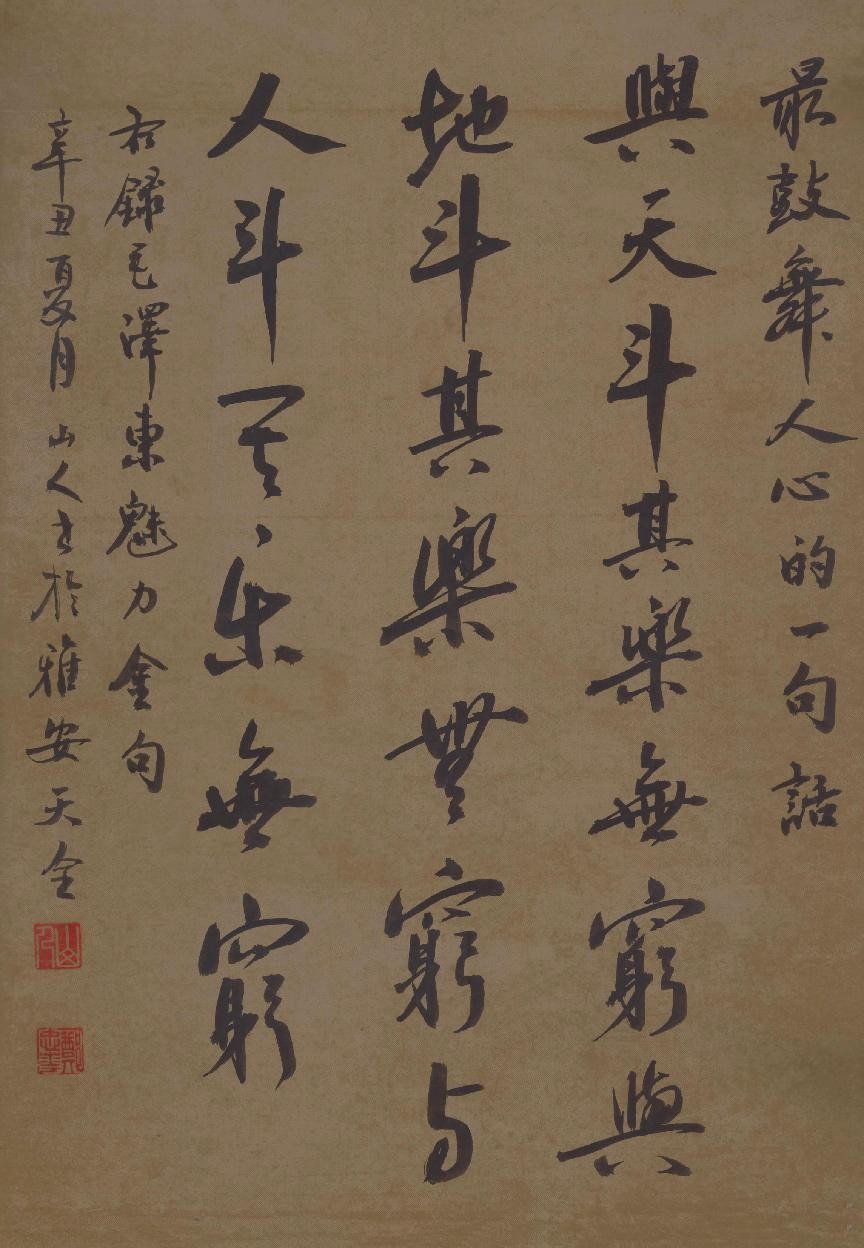 最鼓舞人心的一句話
與天斗其樂無窮與
地斗其樂無窮与
人斗其乐無窮
右錄毛澤東魅力金句
辛丑夏月山人书於雅安天全
山人